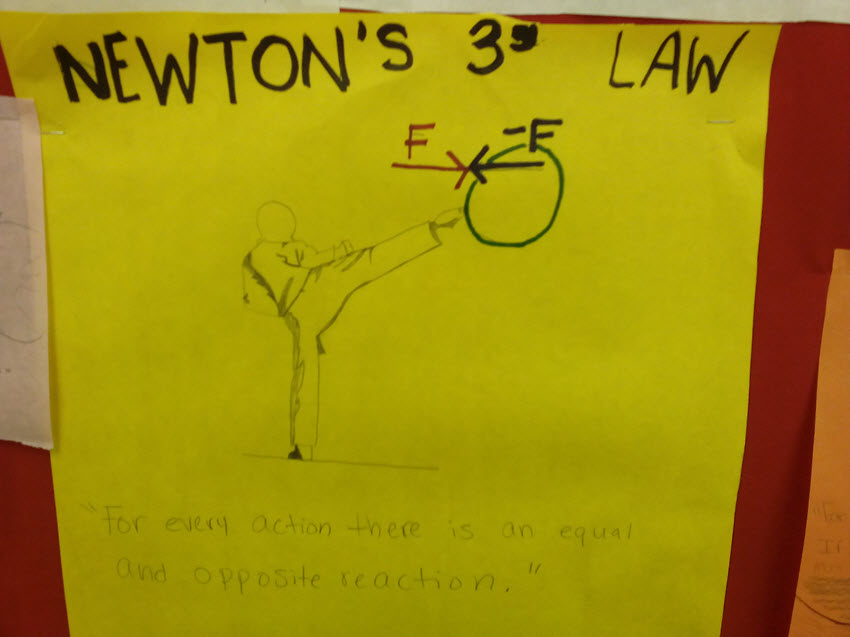 NEWTON'S 3rd LAW
F
-F
"For every action there is an equal
and opposite reaction."